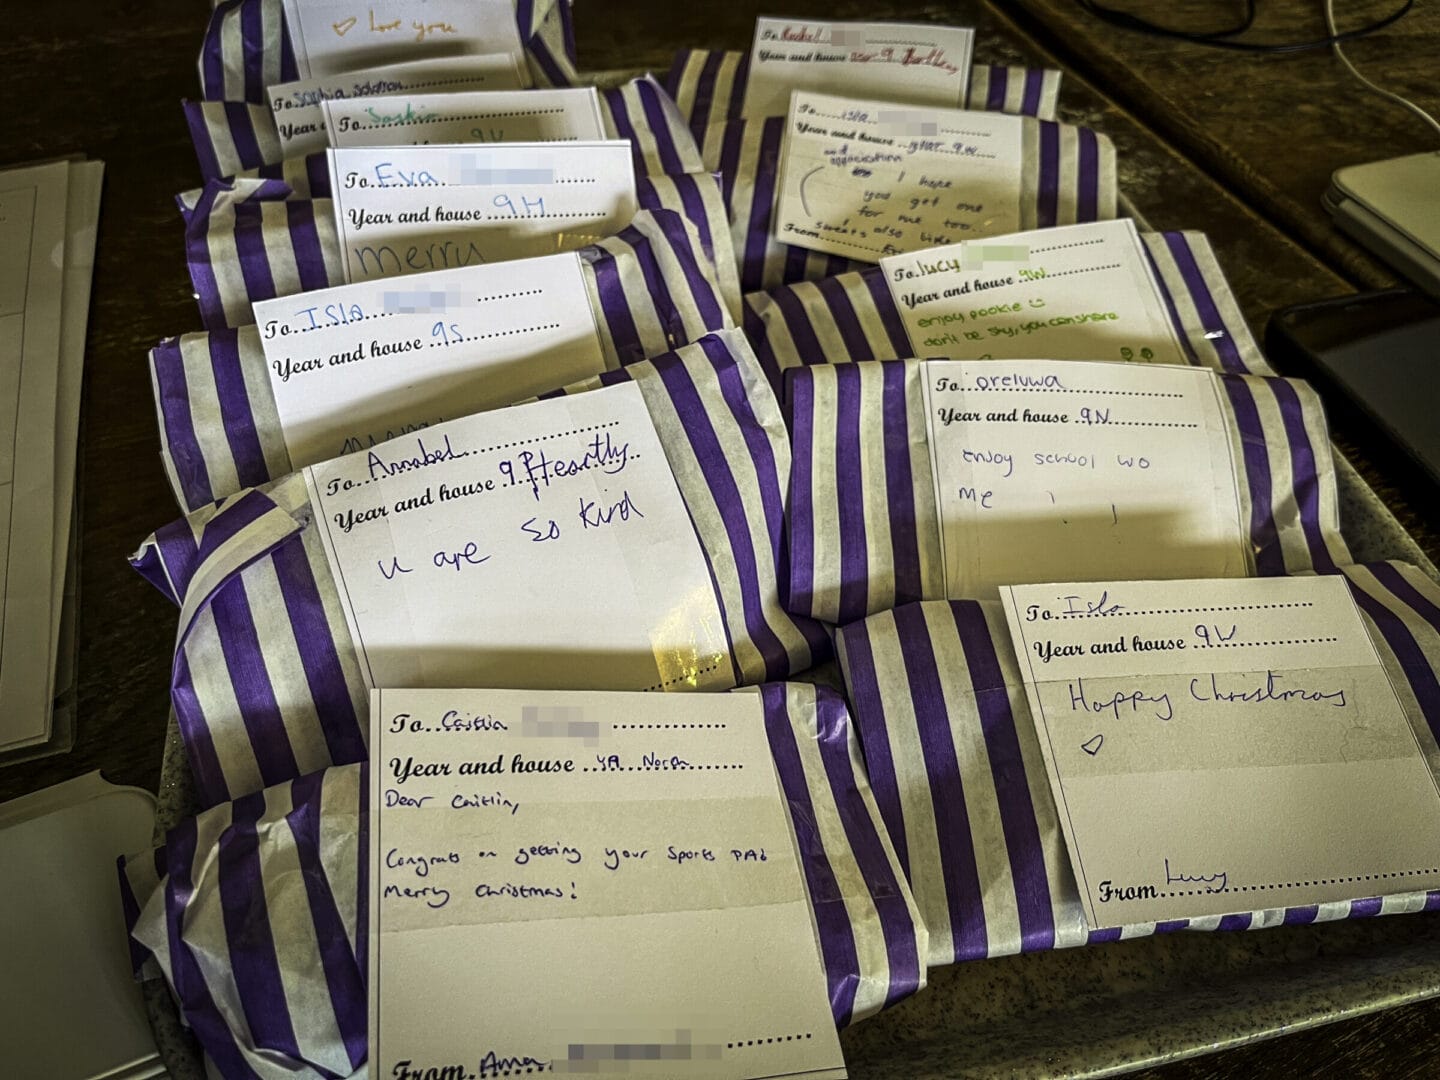 ♡ Love you
To Sophia Solomon
Year
To Saskia
9W
To Eva
Year and house 9H
Merry
To Isla
Year and house 9S
To Annabel
Year and house 9 Heartly
u are so kind
To Caitlin
Year and house YA North
Dear Caitlin,
Congrats on getting your Sports PA!
Merry Christmas!
From Anna
To Rachel
Year and house year 9
To Isla
Year and house year 9W
appreciation
I hope
you get one
for me too..
sweets also
From
To Lucy
Year and house 9W
enjoy pookie ☺
don't be shy, you can share
To Oreluwa
Year and house 9N
enjoy school wo
me ! !
To Isla
Year and house 9W
Happy Christmas
♡
From Lucy